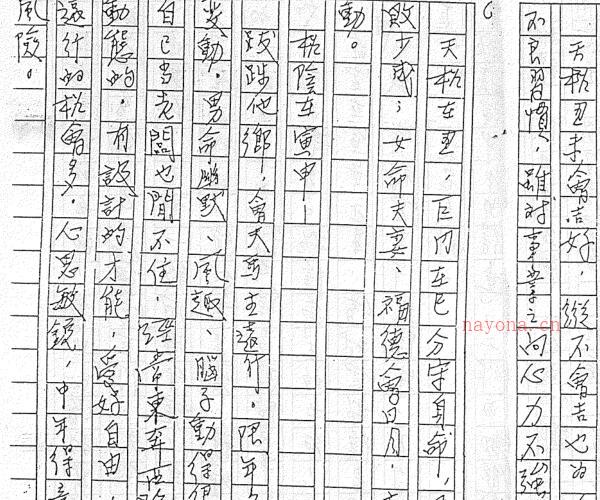 天機丑未會吉好，縱不會吉也為
不良習慣，雖對事業之向心力不強
天機在丑，巨门在巳分守身命，
敗少成；女命夫妻、福德會日月，
動。
機陰在寅申—
跋跎他鄉，會天馬主遠行。限年
变動。男命幽默、風趣、腦子動得很
自己当老闆也閒不住，經常東奔西
動態的，有設計的才能，愛好自由
遠行的機會多。心思敏銳，中年得意
風險。
nayona.cn